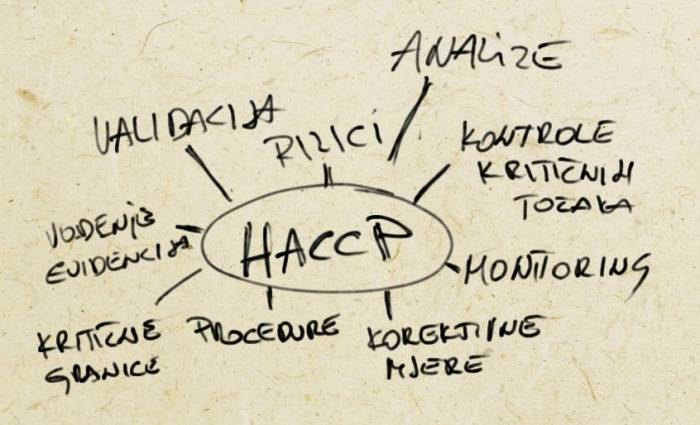 ANALIZE
VALIDACIJA
RIZICI
KONTROLE
KRITIČNIH
TOČAKA
VOĐENJE
EVIDENCIJA
HACCP
MONITORING
KRITIČNE
GRANICE
PROCEDURE
KOREKTIVNE
MJERE